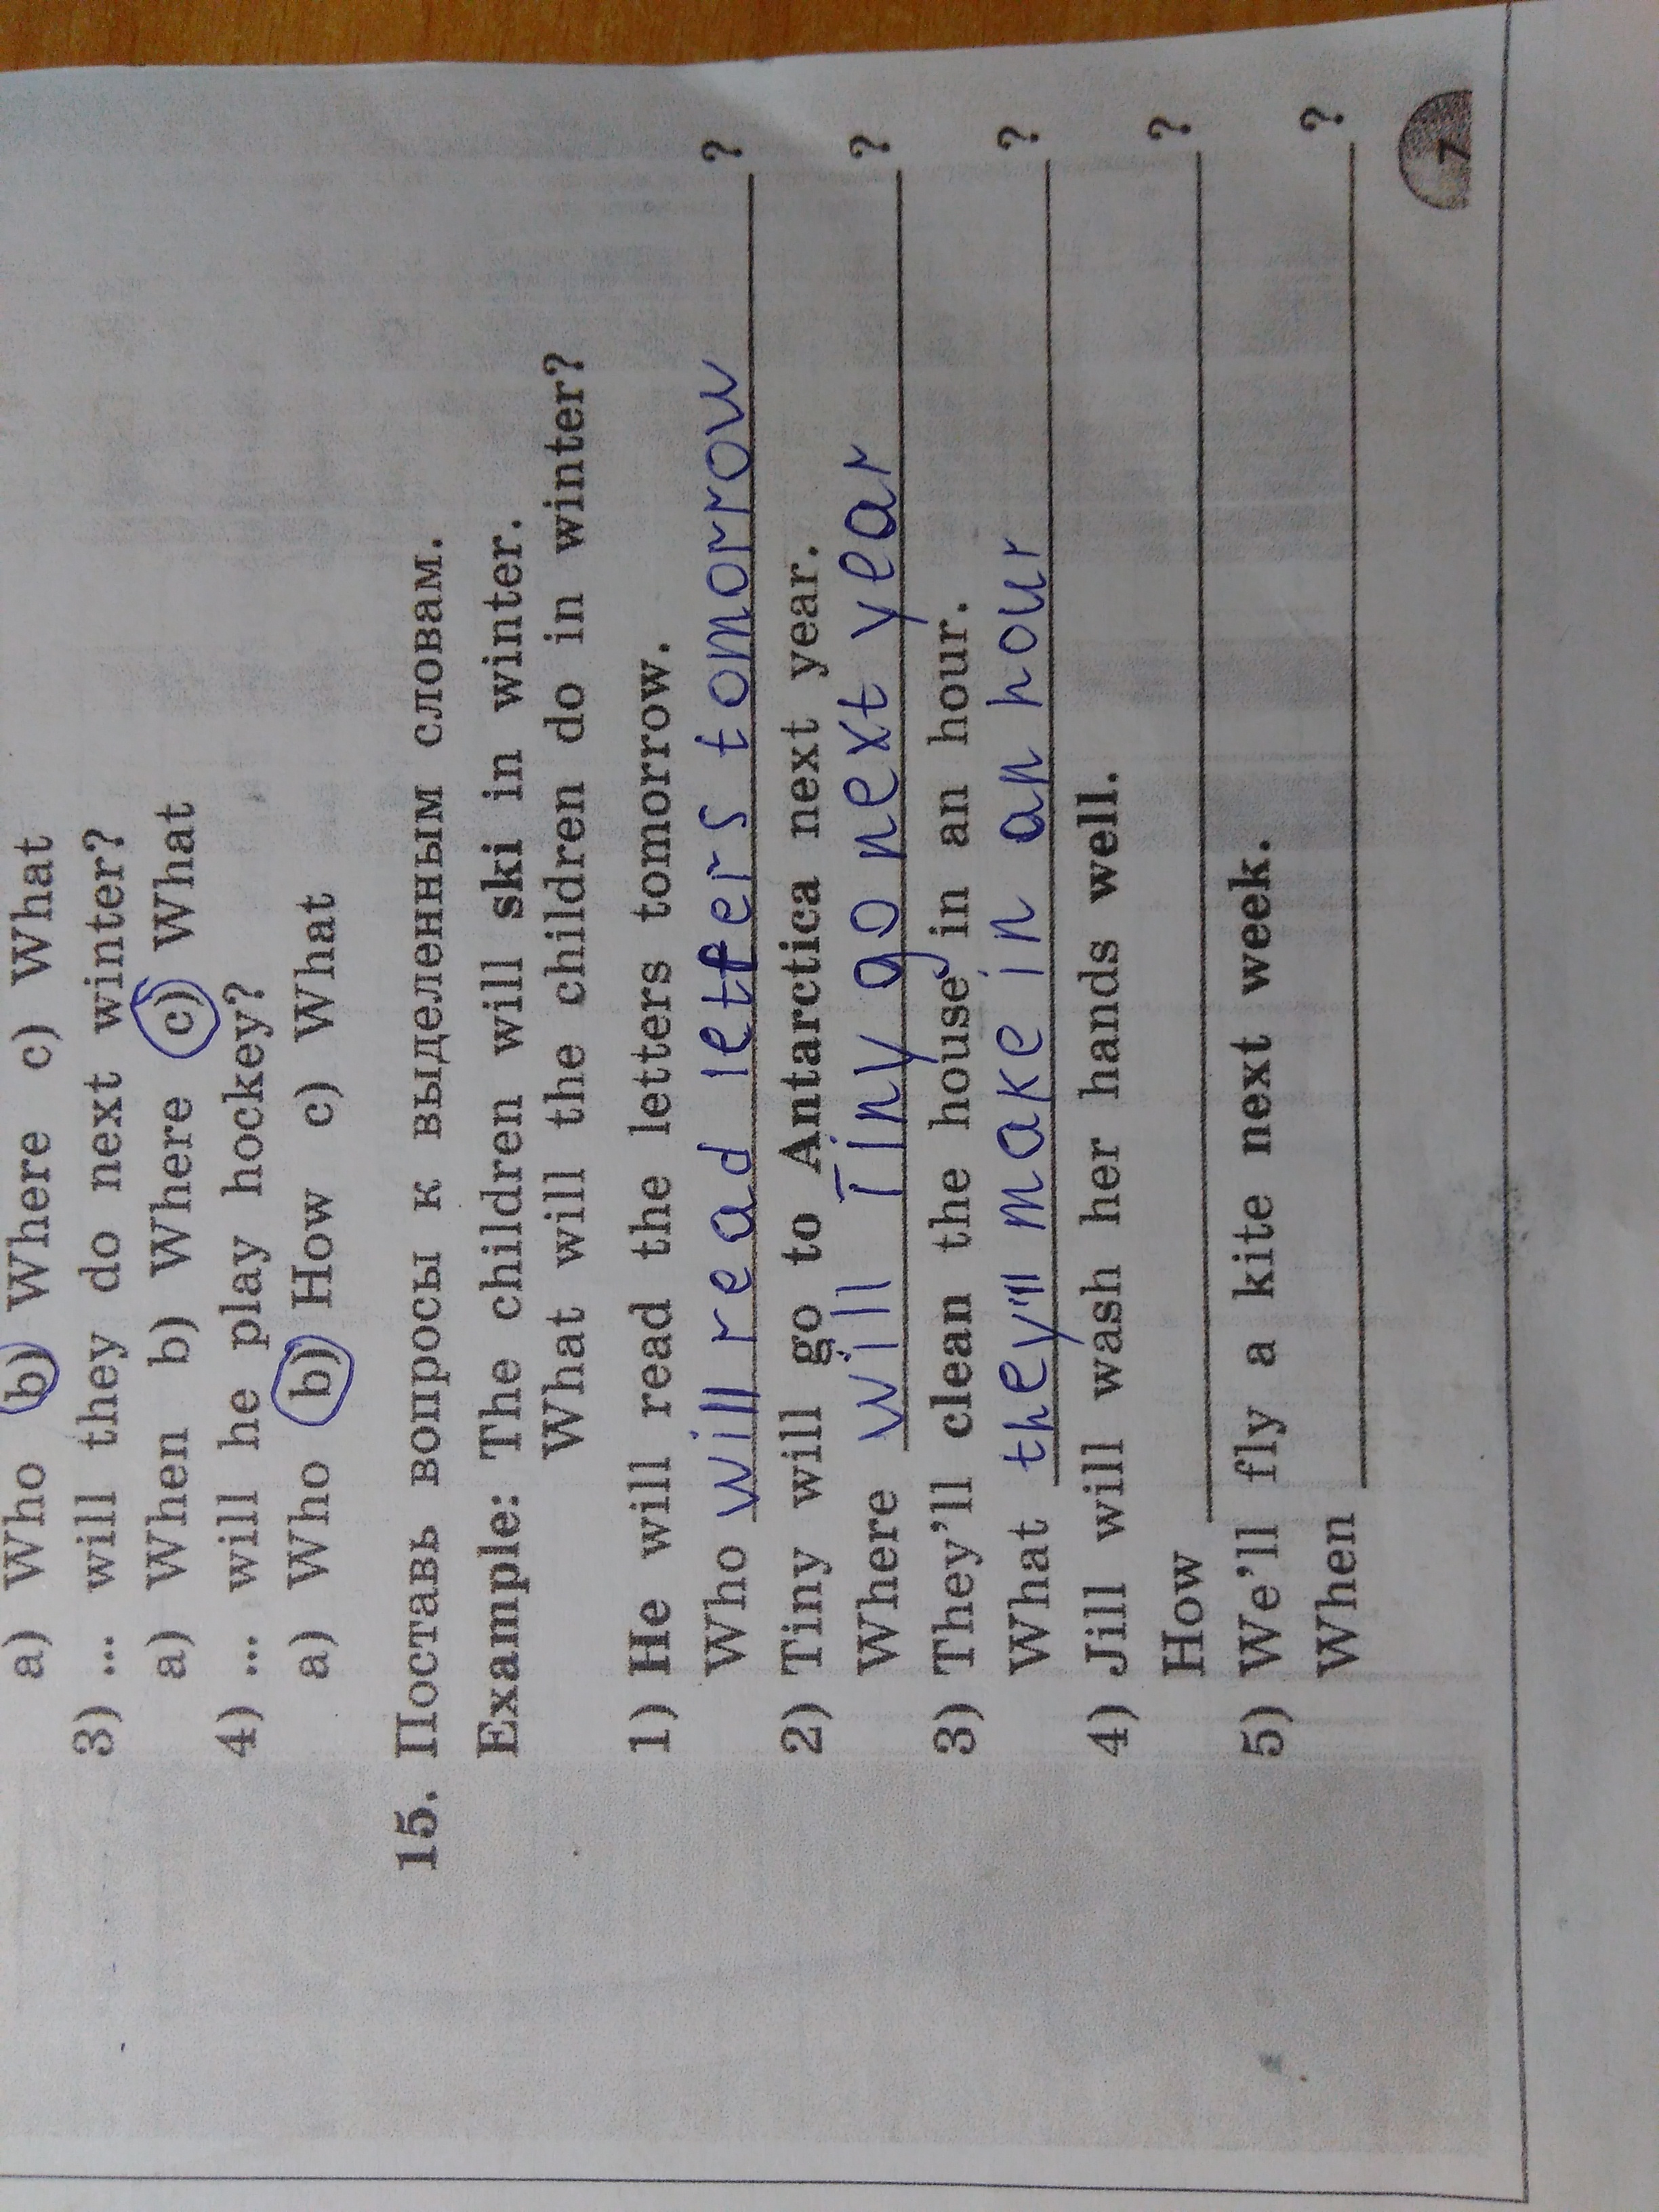 a) Who b) Where c) What
3) ... will they do next winter?
a) When b) Where c) What
4) ... will he play hockey?
a) Who b) How c) What
15. Поставь вопросы к выделенным словам.
Example: The children will ski in winter.
What will the children do in winter?
1) He will read the letters tomorrow.
Who will read letters tomorrow ?
2) Tiny will go to Antarctica next year.
Where will Tiny go next year ?
3) They'll clean the house in an hour.
What they'll make in an hour ?
4) Jill will wash her hands well.
How ?
5) We'll fly a kite next week.
When ?
7